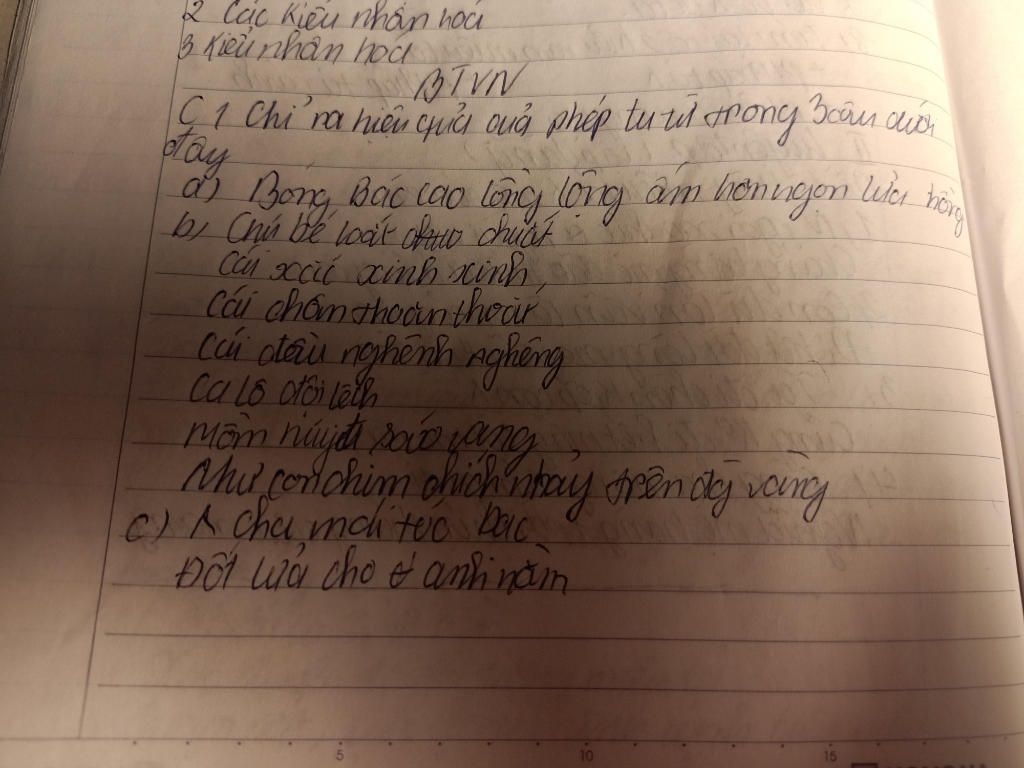 2 Các kiểu nhân hoá
3 kiểu nhân hoá
BTVN
C1 Chỉ ra hiệu quả quả phép tu từ trong 3 câu dưới
đây
a) Bóng Bác cao lồng lộng ấm hơn ngọn lửa hồng
b, Chú bé loắt choắt
Cái xắc xinh xinh,
Cái chân thoăn thoắt
Cái đầu nghênh nghênh
Ca lô đội lệch
mồm huýt sáo vang
Như con chim chích nhảy trên đg vàng
c) A cha mái tóc bạc
Đốt lửa cho anh nằm
5
10
15